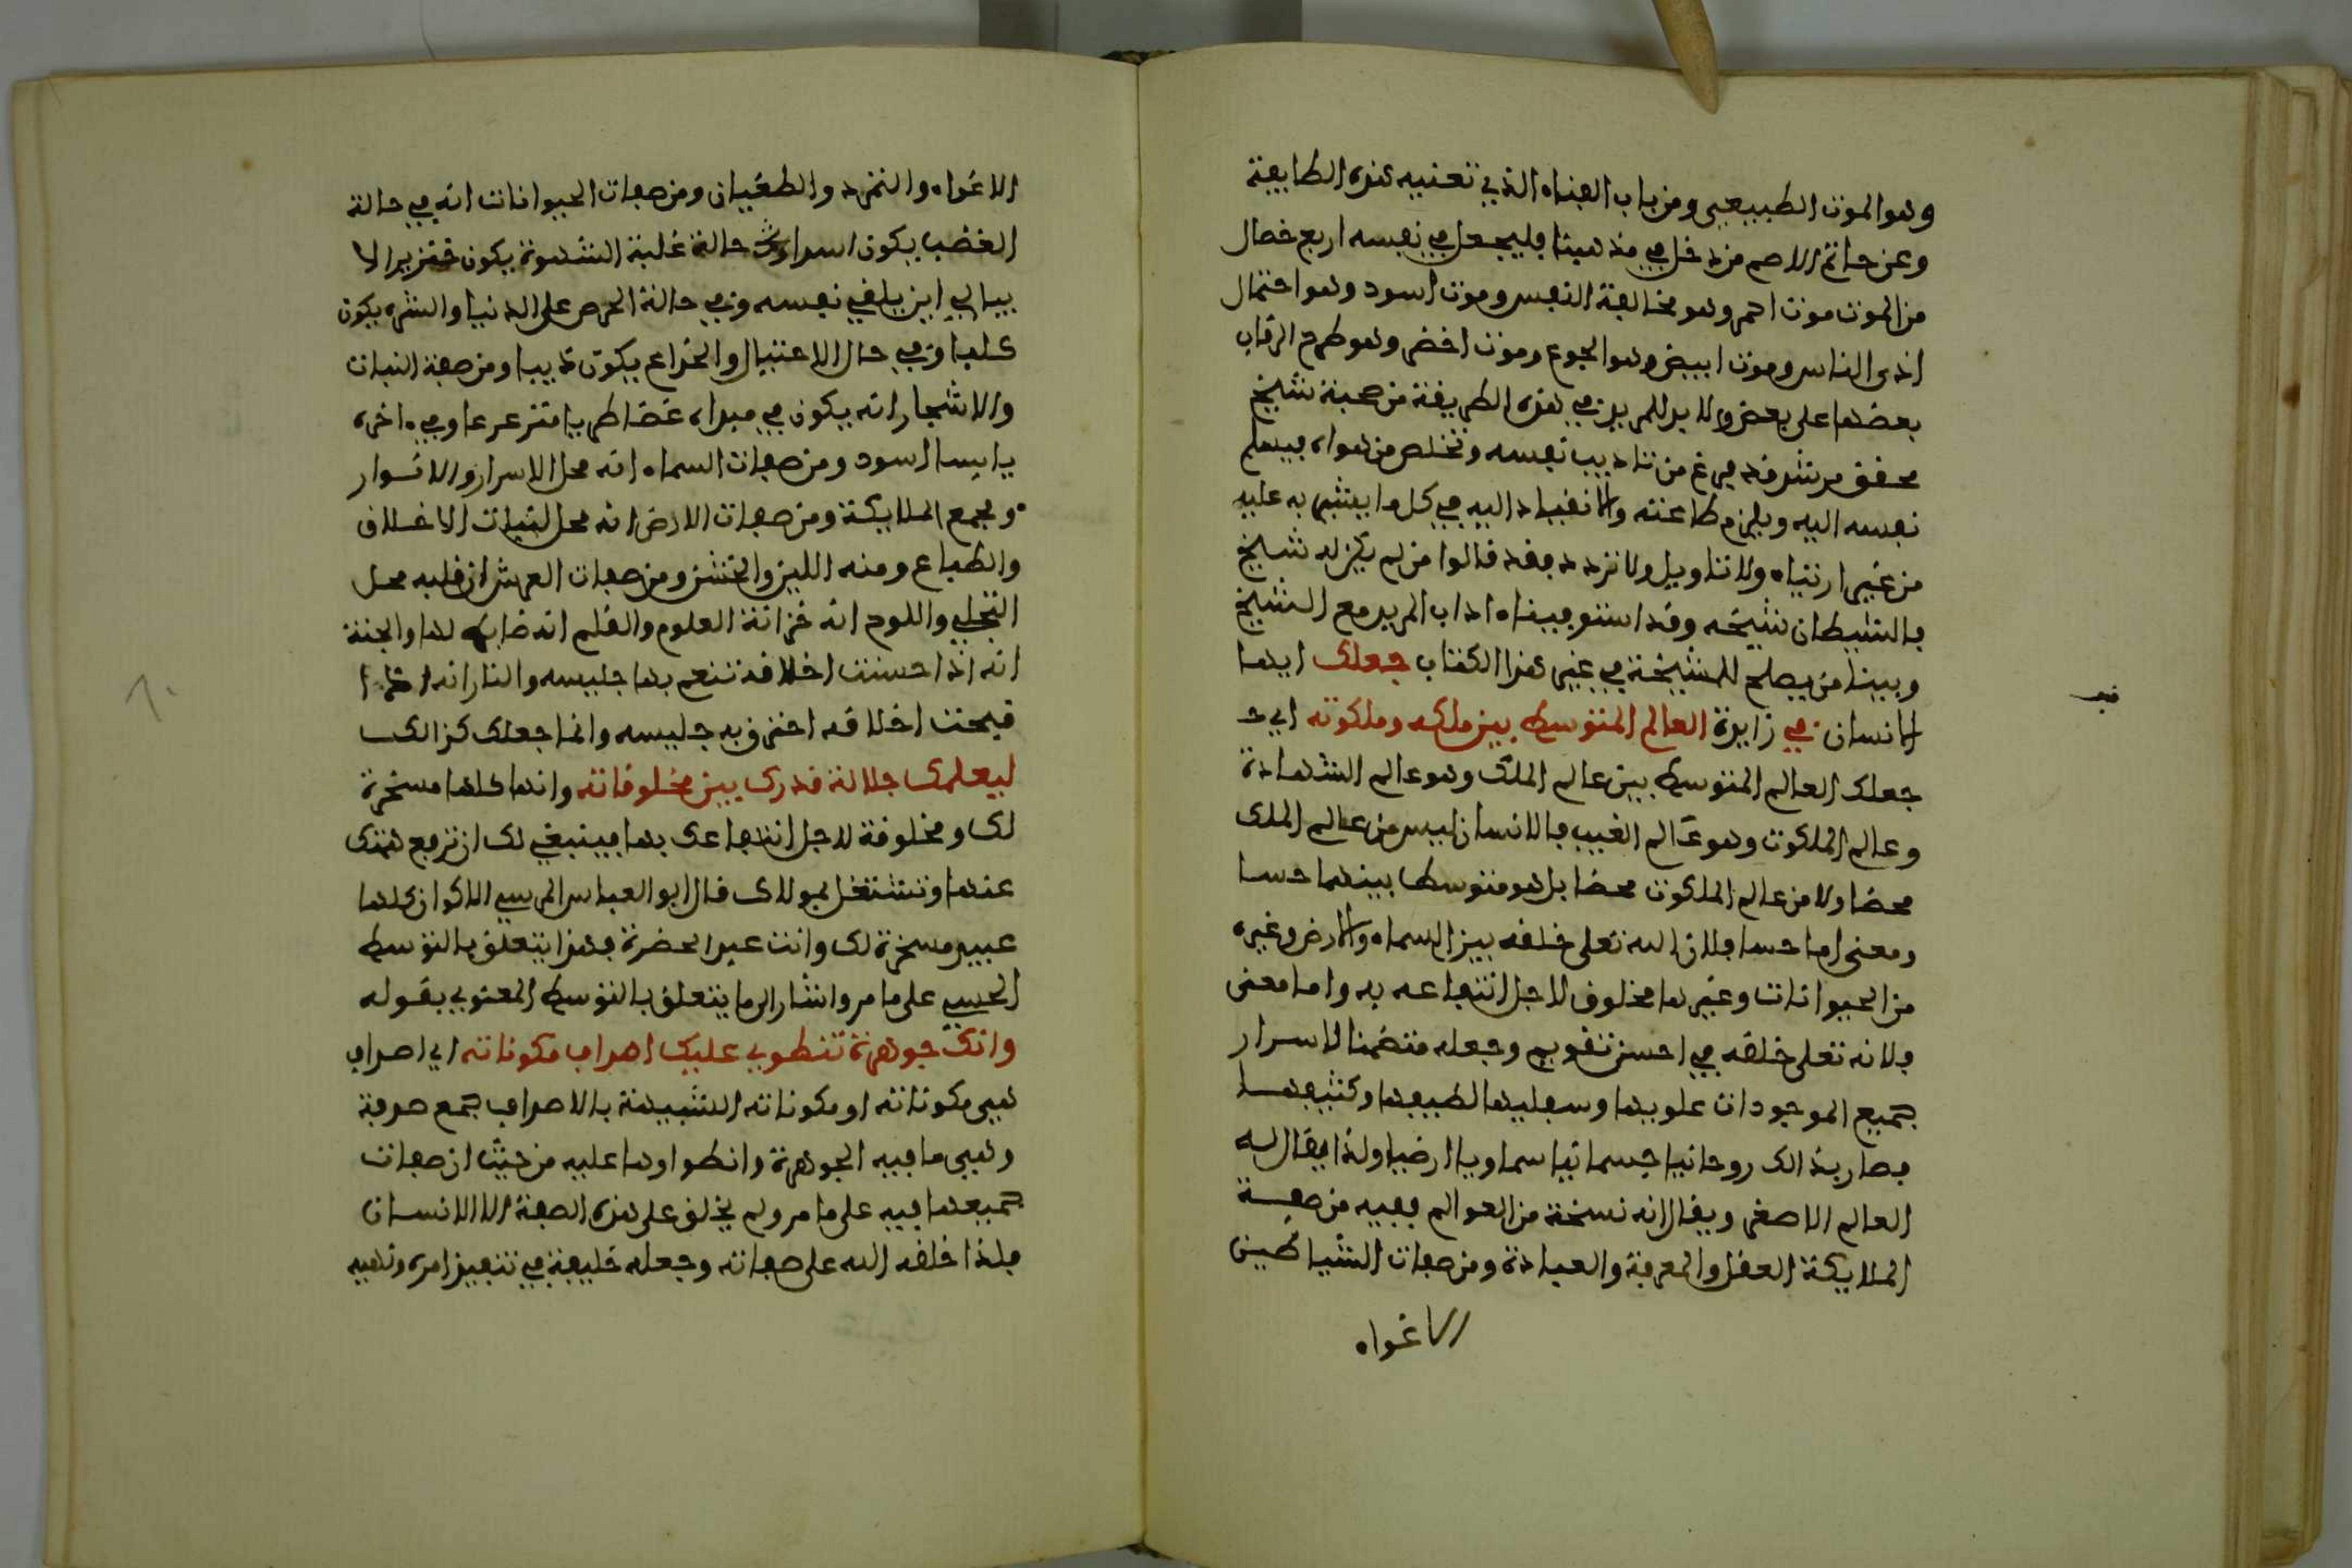 وهو الموت الطبيعي ومن باب الفناء الذي تعنيه هذه الطايفة
وعن حاتم الاصم من دخل في مذهبنا فليجعل في نفسه اربع خصال
من الموت موت احمر وهو مخالفة النفس وموت اسود وهو احتمال
اذى الناس وموت ابيض وهو الجوع وموت اخضر وهو طرح الرقاب
بعضها على بعض ولا بد للمريد في هذه الطريقة من صحبة شيخ
محقق مرشد قد فرغ من تاديب نفسه وتخلص من هواه فيسلم
نفسه اليه ويلزم طاعته والانقياد اليه في كل ما يشير به عليه
من غير ارتياء ولا تاويل ولا تردد فقد قالوا من لم يكن له شيخ
فالشيطان شيخه وقد استوفينا اداب المريد مع الشيخ
وبينا من يصلح للمشيخة في غير هذا الكتاب جعلك ايها
الانسان في زايرة العالم المتوسط بين ملكه وملكوته اي
جعلك العالم المتوسط بين عالم الملك وهو عالم الشهادة
وعالم الملكوت وهو عالم الغيب فالانسان ليس من عالم الملك
محضا ولا من عالم الملكوت محضا بل هو متوسط بينهما حسا
ومعنى اما حسا فلان الله تعلى خلقه بين السماء والارض وغيره
من الحيوانات وغيرها مخلوق لاجل انتفاعه به واما معنى
فلانه تعلى خلقه في احسن تقويم وجعله متضمنا لاسرار
جميع الموجودات علويها وسفليها لطيفها وكثيفها
فصار بذالك روحانيا جسمانيا سماويا ارضيا ولذا يقال له
العالم الاصغر ويقال انه نسخة من العوالم ففيه من صفة
الملايكة العقل والمعرفة والعبادة ومن صفات الشياطين
الاغواء
الاغواء والتمرد والطغيان ومن صفات الحيوانات انه في حالة
الغضب يكون اسدا وفي حالة غلبة الشهوة يكون خنزيرا لا
يبالي اين يلقي نفسه وفي حالة الحرص على الدنيا والشره يكون
كلبا وفي حال الاحتيال والخداع يكون ذيبا ومن صفة النبات
والاشجار انه يكون في مبداه غضا طريا مترعرعا وفي اخره
يابسا اسود ومن صفات السماء انه محل الاسرار والانوار
ومجمع الملايكة ومن صفات الارض انه محل لنبات الاخلاق
والطباع ومنه اللين والخشن ومن صفات العرش ان قلبه محل
التجلي واللوح انه خزانة العلوم والقلم انه ضابط لها والجنة
انه اذا حسنت اخلاقه تنعم بها جليسه والنار انه اذا
قبحت اخلاقه احترق به جليسه وانما جعلك كذالك
ليعلمك جلالة قدرك بين مخلوقاته وانها كلها مسخرة
لك ومخلوقة لاجل انتفاعك بها فينبغي لك ان ترفع همتك
عنها وتشتغل بمولاك قال ابو العباس المرسي الاكوان كلها
عبيد مسخرة لك وانت عبد الحضرة فهذا يتعلق بالتوسط
الحسي على ما مر واشار الى ما يتعلق بالتوسط المعنوي بقوله
وانك جوهرة تنطوي عليك اصداف مكوناته اي اصداف
هي مكوناته او مكوناته الشبيهة بالاصداف جمع صدفة
وهي ما فيه الجوهرة وانطواوها عليه من حيث ان صفات
جميعها فيه على ما مر ولم يخلق على هذه الصفة الا الانسان
فلذا خلقه الله على صفاته وجعله خليفة في تنفيذ امره ونهيه